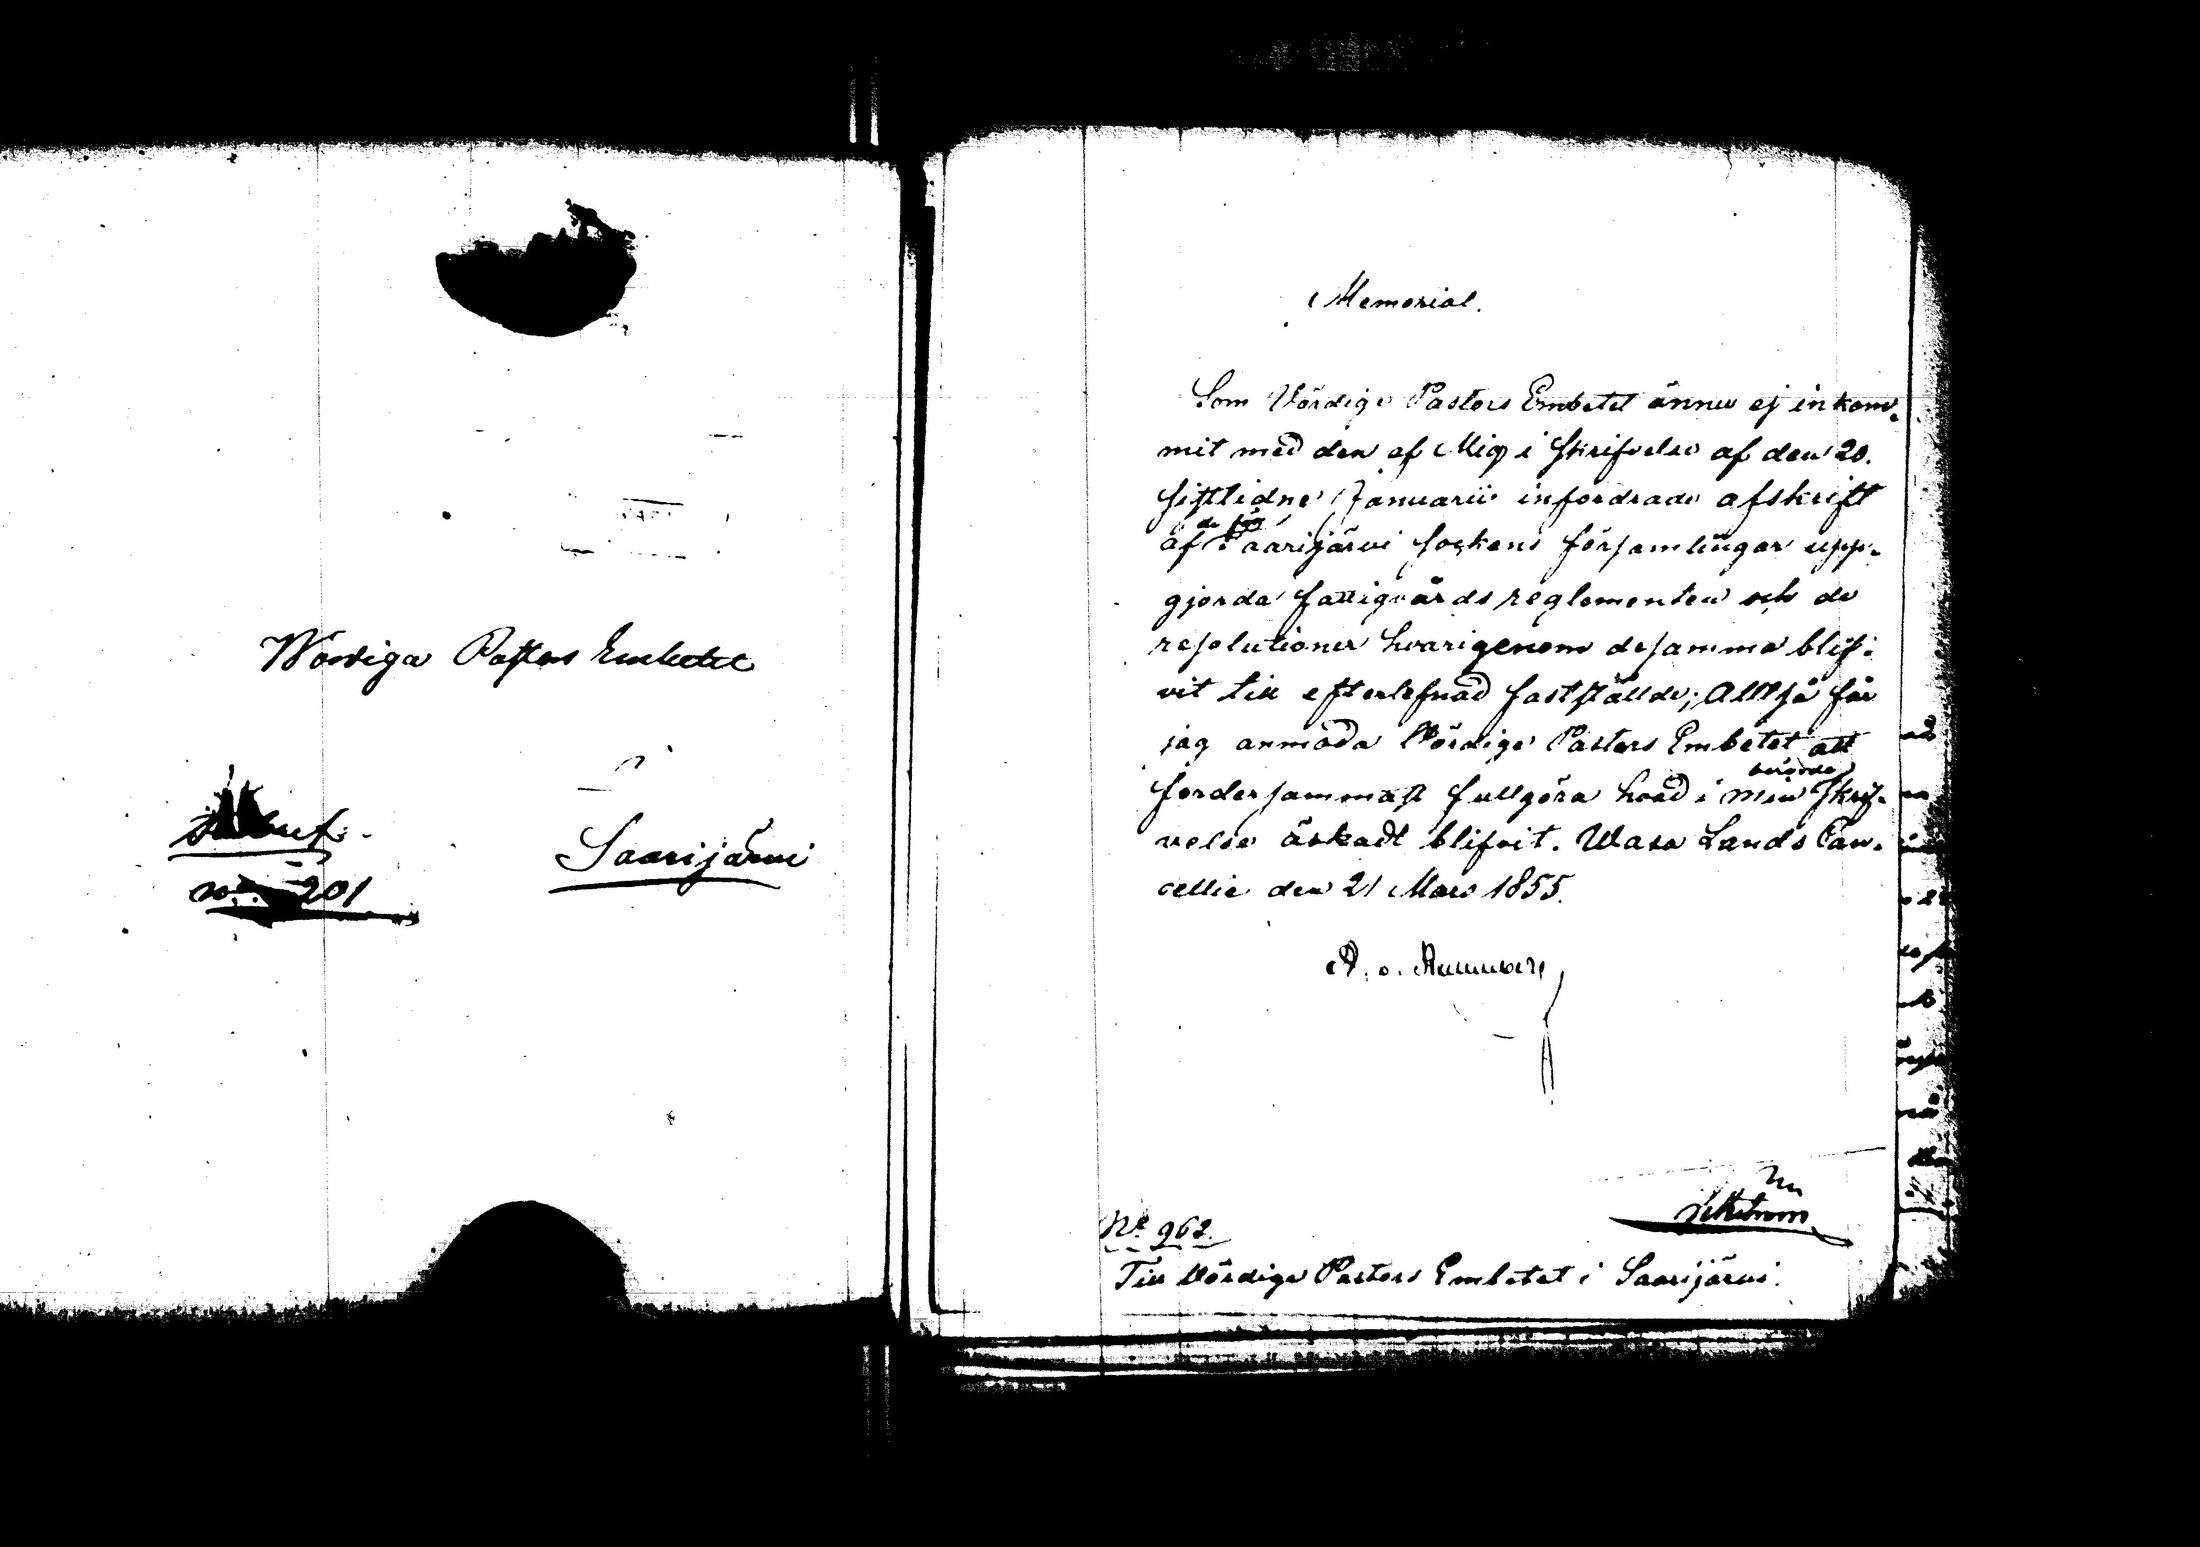 Wördiga Pastors Embetet
Saarijärvi
201
Memorial.
Som Vördige Pastors Embetet ännu ej inkom-
mit med den af Mig i skrifvelse af den 20.
sistlidne Januarii infordrade afskrift
de för
af Saarijärvi sockens församlingar upp-
gjorda fattigvårds reglementen och de
resolutioner hvarigenom desamma blif-
vit till efterlefnad fastställde; Alltså får
jag anmoda Vördige Pastors Embetet att
berörde
fordersammast fullgöra hvad i min skrif-
velse äskadt blifvit. Wasa Lands Can-
cellie den 21 Mars 1855.
No 962.
Till Vördige Pastors Embetet i Saarijärvi.